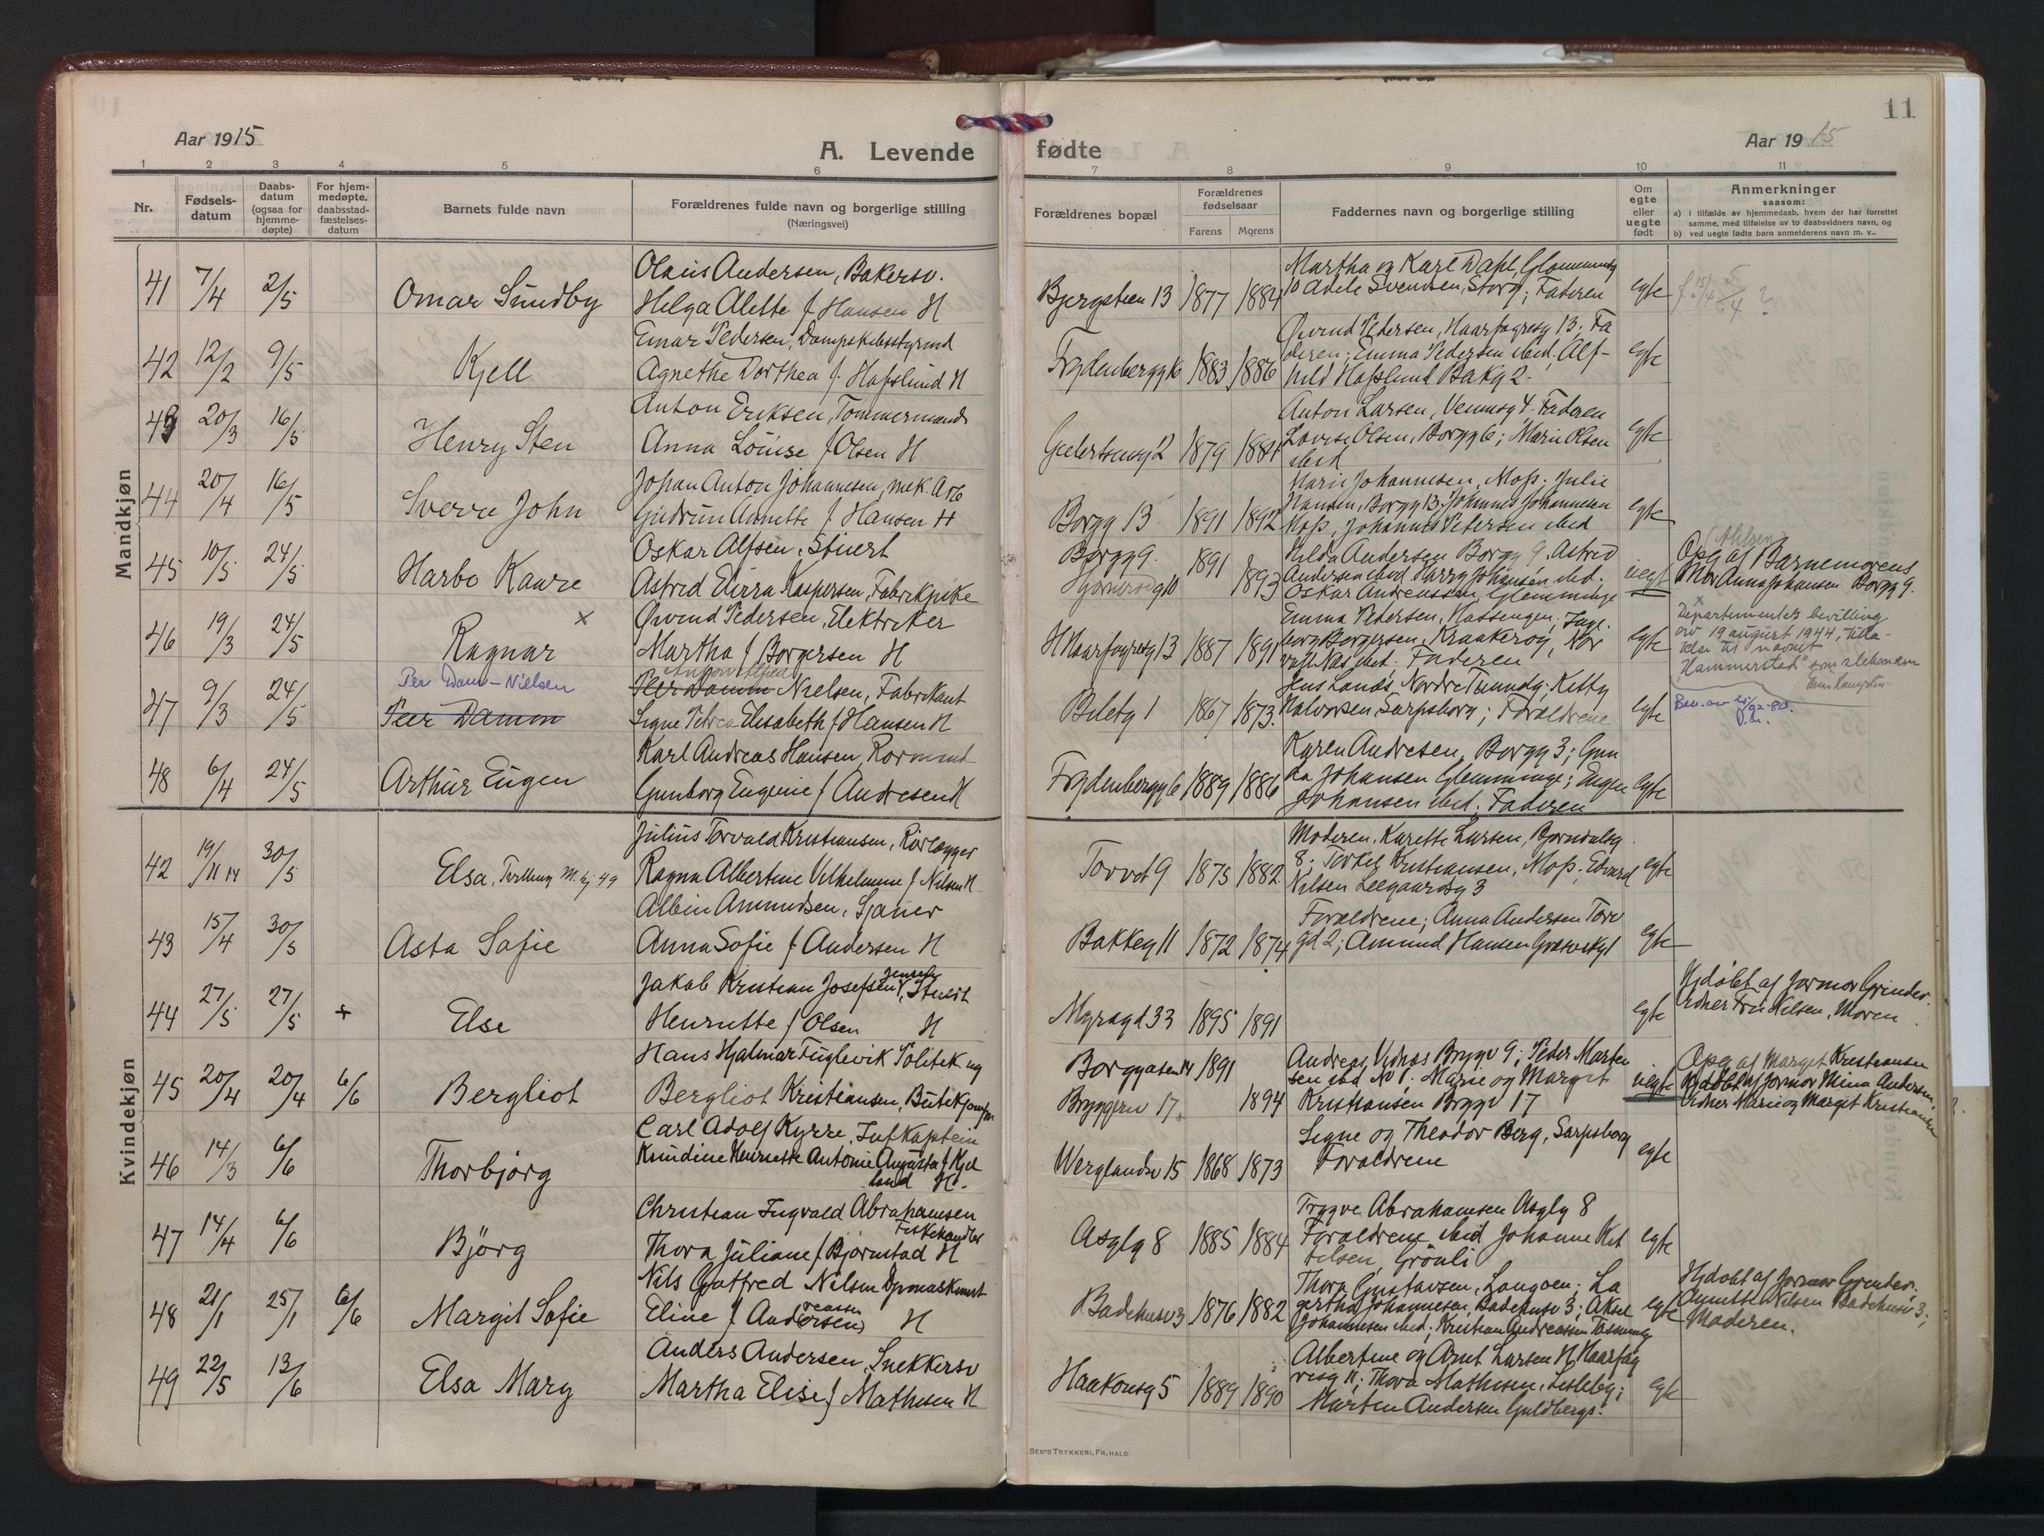 11
Aar 1915
A. Levende fødte
Aar 1915
1 2 3 4 5 6 7 8 9 10 11
Nr.
Fødsels-
datum
Daabs-
datum
(ogsaa for
hjemme-
døpte)
For hjem-
medøpte,
daabsstad-
fæstelses-
datum
Barnets fulde navn
Forældrenes fulde navn og borgerlige stilling
(Næringsvei)
Forældrenes bopæl
Forældrenes
fødselsaar
Farens Morens
Faddernes navn og borgerlige stilling
Om
egte
eller
uegte
født
Anmerkninger
saasom:
a) i tilfælde av hjemmedaab, hvem der har forrettet
samme, med tilføielse av to daabsvidners navn, og
b) ved uegte fødte barn anmelderens navn m. v..
Mandkjøn
41 7/4 2/5 Omar Sundby
Olaus Andersen, Bakersv.
Helga Alette f Hansen H
Bjergstien 13 1877 1884
Martha og Karl Dahl, Glommensg
10 Adele Svendsen, Storg; Faderen
egte
42 12/2 9/5 Kjell
Einar Pedersen, Dampskibsstyrmd
Agnethe Dorthea f. Hafslund H
Frydenbergg 16 1883 1886
Øivind Pedersen, Haarfagresg 13. Fa
deren; Emma Pedersen ibid, Alf-
hild Hafslund Bakg 2.
egte
43 20/3 16/5 Henry Sten
Anton Eriksen, Tømmermand
Anna Louise f Olsen H
1879 1881
Anton Larsen, Venusg 4. Faderen
Lovise Olsen, Borgg 6; Marie Olsen
ibid
egte
44 20/4 16/5 Sverre John
Johan Anton Johannesen, mek. Arb
Gudrun Annette f Hansen H
Borgg 13 1891 1892
Marie Johannesen, Moss. Julie
Hansen, Borgg 13; Johannes Johannesen
Moss, Johannes Petersen ibid
egte
45 10/5 24/5 Harbo Kaare
Oskar Alfsen, Stuert
Astrid Elvira Kaspersen, Fabrikpike
Borgg 9. 1891 1893
Hilda Andersen Borgg 9. Astrid
Andersen ibid Harry Johansen ibid.
Oskar Andreassen, Glemminge
uegt
Opg af Barnemorens
Mor Anna Johansen Borgg 9.
46 19/3 24/5 Ragnar ×
Øivind Pedersen, Elektriker
Martha f Borgersen H
H Haarfagresg 13 1887 1891
Emma Pedersen, Hassengen; Inge
borg Borgersen, Kraakerøy, Nor
vall Næs ibid. Faderen
egte
× Departementets bevilling
av 19 august 1944, tilla-
telse til navnet
"Hammerstad" som slektsnavn
47 9/3 24/5 Per Dam-Nielsen
Peer Damm
Anton Alfred
Peer Damm Nielsen, Fabrikant
Signe Petrea Elisabeth f Hansen H
Biletg 1 1867 1873.
Jens Lands, Nordre Tverrdg. Kitty
Halvorsen, Sarpsborg; Forældrene
egte
48 6/4 24/5 Arthur Eugen
Karl Andreas Hansen, Rormand
Gunborg Eugenie f Andresen H
Frydenbergg 6 1889 1886
Karen Andresen, Borgg 3; Gun
da Johansen Glemminge; Eugen
Johansen ibid. Faderen
egte
Kvindekjøn
42 19/11 14 30/5 Elsa, Tvilling M. kj 49
Julius Torvald Kristiansen, Rørlægger
Ragna Albertine Vilhelmine f Nilsen H
Torvet 9 1875 1882
Moderen, Karette Larsen, Bjørndalsg.
8; Torkel Kristiansen, Moss; Edvard
Nilsen Leegaardsg 3
egte
43 15/4 30/5 Asta Sofie
Albin Amundsen, Sjauer
Anna Sofie f Andersen H
Bakkeg 11 1872 1874
Forældrene; Anna Andersen Torv
gd 2; Amund Hansen
egte
44 27/5 27/5 + Else
Jakob Kristian Josefsen Jensen, Stuert
Henriette f Olsen H
Myragd 33 1895 1891
egte
Hjdøbt af Jormor Grinder.
Vidner Fru Nilsen, Moren
45 20/4 20/4 6/6 Bergliot
Hans Hjalmar Fuglevik Politik
Bergliot Kristiansen, Butikjomfr
Borggasen 14 1891
Bryggeriv 17. 1894
Andreas Vidnes Bryggv 9; Peder Marten
sen ibd No 1. Marie og Margit
Kristiansen Bryggv 17
uegte
Opg af Margit Kristiansen
Hjdøbt af Jormor Mina Andersen,
Vidner Marie og Margit Kristiansen
46 14/3 6/6 Thorbjørg
Carl Adolf Kyrre, Inf Kaptein
Kundine Henriette Antonie Augusta f Kjel
land H.
Werglandsv 15 1868 1873
Signe og Theodor Berg, Sarpsborg
Forældrene
egte
47 14/4 6/6 Bjørg
Christian Ingvald Abrahamsen
Fiskehandler
Thora Juliane f Bjørnstad H
Asylg 8 1885 1884
Trygve Abrahamsen Asylg 8
Forældrene ibid Johanne Ket
telsen, Grønli
egte
48 21/1 25/1 6/6 Margit Sofie
Nils Gotfred Nilsen Dpmaskinist
Eline f Andersen (reassen) H
Badehusv 3 1876 1882
Thora Gustavsen, Langøen; La
gertha Johannesen, Badehusv 3; Aksel
Johannesen ibid; Kristian Andreassen
egte
Hjdøbt af Jormor Grinder;
Annette Nilsen Badehusv 3;
Moderen.
49 22/5 13/6 Elsa Mary
Anders Andersen, Snekkersv
Martha Elise f Mathisen H
Haakonsg 5 1889 1890
Albertine og Arnt Larsen H Haarfag
resg 11; Thora Mathisen, Lisleby;
Marten Andersen Guldbergs.
egte
SEM'S TRYKKERI, FR.HALD